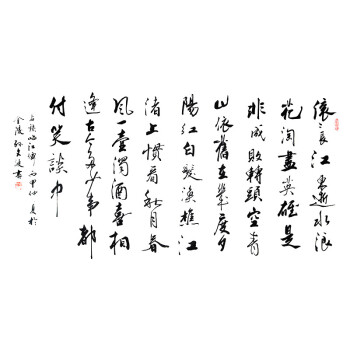 滚滚长江东逝水浪
花淘盡英雄是
非成敗轉頭空青
山依舊在幾度夕
陽红白髮漁樵江
渚上慣看秋月春
風一壺濁酒喜相
逢古今多少事都
付笑談中
右錄临江仙丙申仲夏於
金陵 書